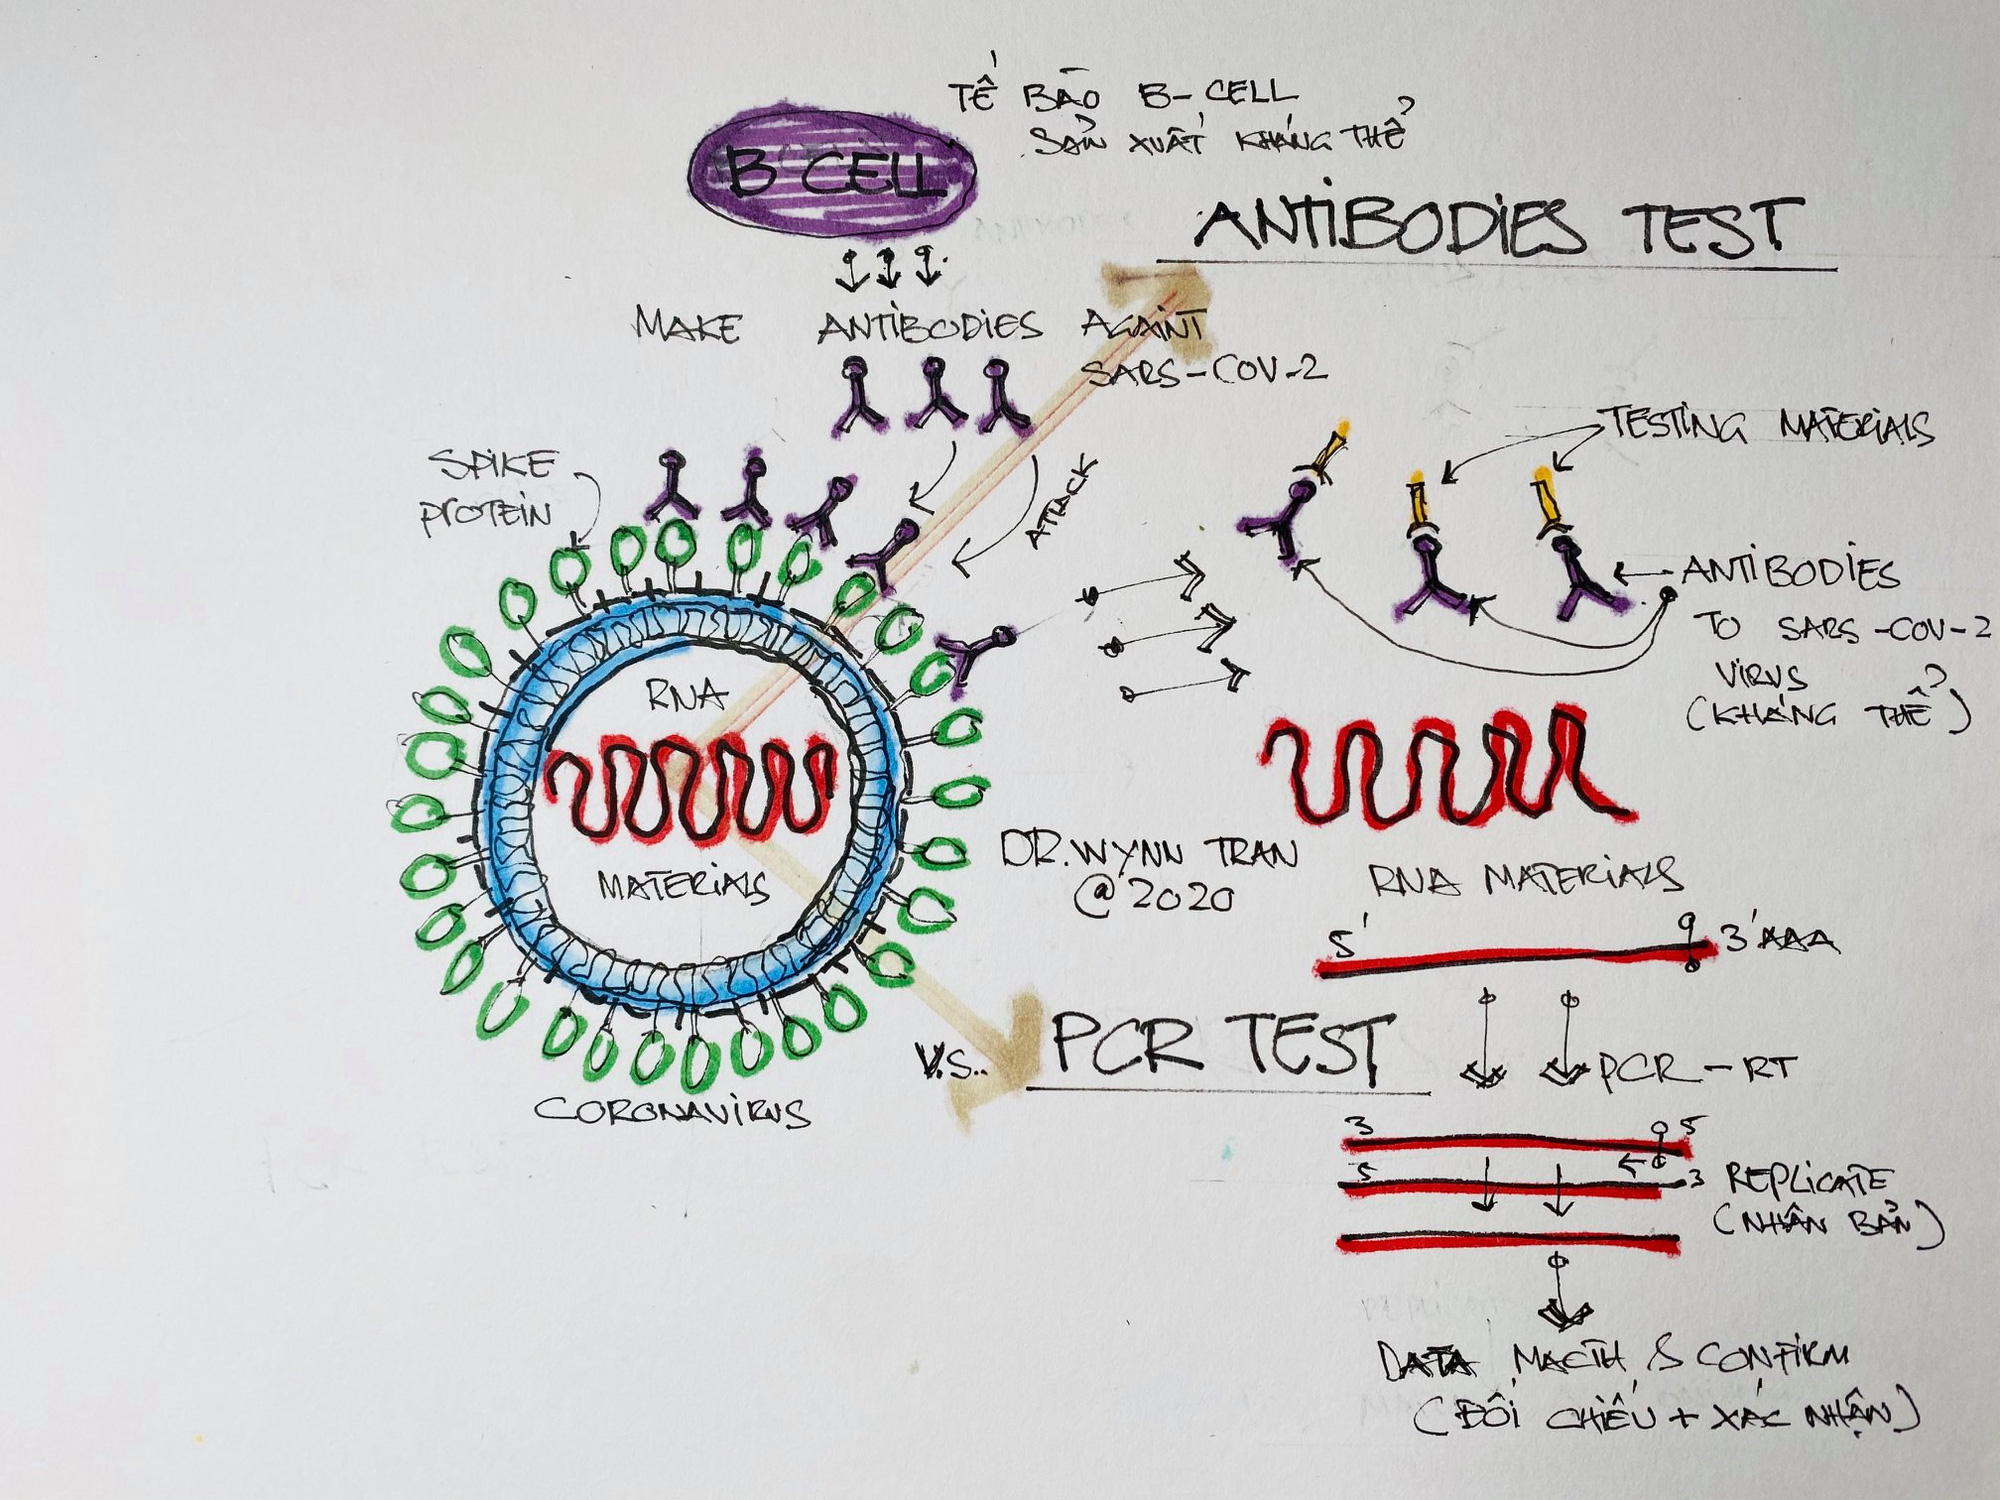 TẾ BÀO B-CELL
SẢN XUẤT KHÁNG THỂ
B CELL
ANTIBODIES TEST
MAKE ANTIBODIES AGAINT
SARS-COV-2
SPIKE
PROTEIN
ATTACK
TESTING MATERIALS
ANTIBODIES
TO SARS-COV-2
VIRUS
(KHÁNG THỂ)
RNA
MATERIALS
CORONAVIRUS
DR. WYNN TRAN
@2020
RNA MATERIALS
5' 3'AAA
V.S..
PCR TEST
PCR-RT
3 5
5 3
REPLICATE
(NHÂN BẢN)
DATA MACTH & CONFIRM
(ĐỐI CHIẾU + XÁC NHẬN)